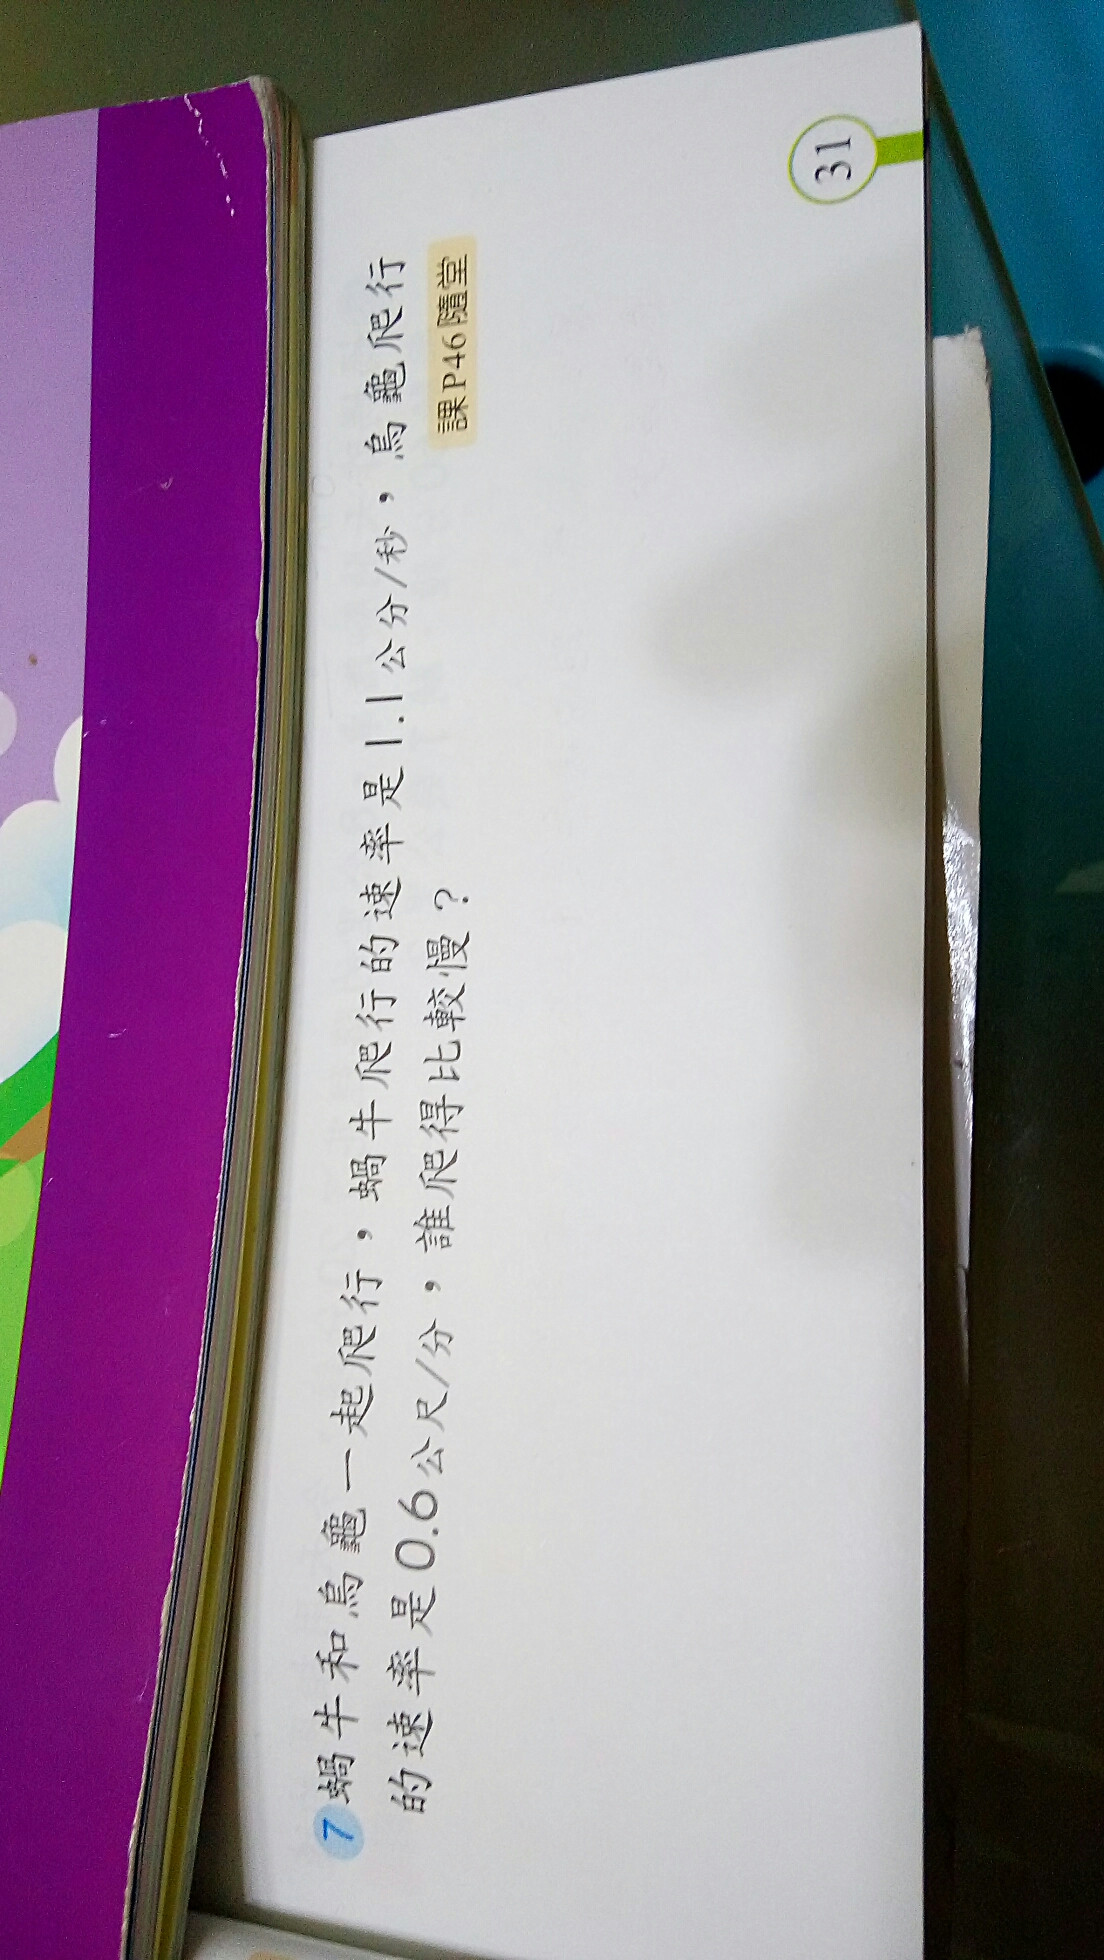 7 蝸牛和烏龜一起爬行，蝸牛爬行的速率是1.1公分/秒，烏龜爬行
的速率是0.6公尺/分，誰爬得比較慢？
課P46隨堂
31